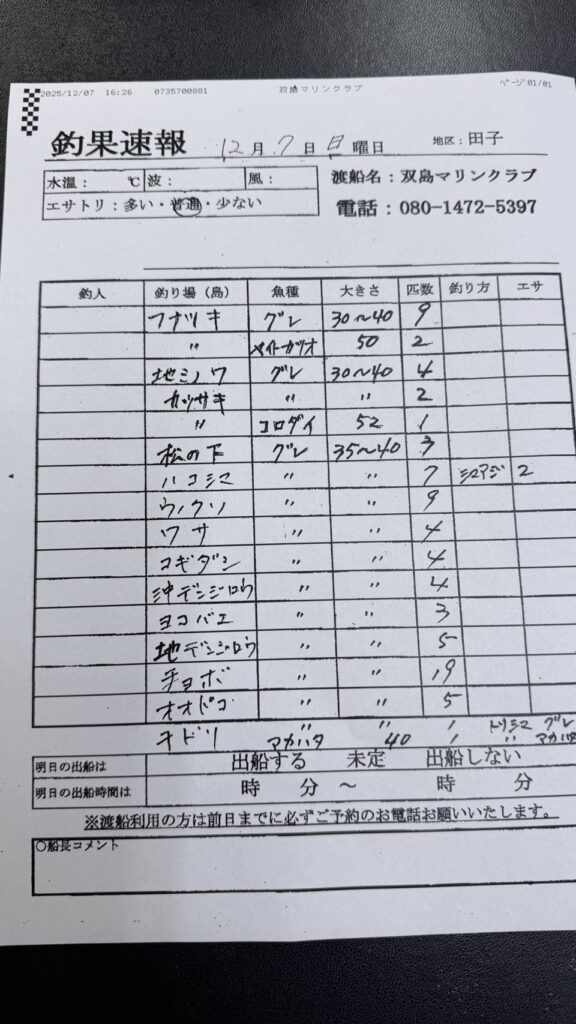 2025/12/07 16:26 0735700881 双島マリンクラブ ページ 01/01
釣果速報 12月7日日曜日 地区：田子
水温： ℃ 波： 風： 渡船名：双島マリンクラブ
エサトリ：多い・普通・少ない 電話：080-1472-5397
釣人 釣り場（島） 魚種 大きさ 匹数 釣り方 エサ
フナツキ グレ 30〜40 9
〃 メイトガツオ 50 2
地ミノワ グレ 30〜40 4
カツサキ 〃 〃 2
〃 コロダイ 52 1
松の下 グレ 35〜40 3
ハコシマ 〃 〃 7 シマアジ 2
ウノクソ 〃 〃 9
ワサ 〃 〃 4
コギダン 〃 〃 4
沖デンジロウ 〃 〃 4
ヨコバエ 〃 〃 3
地デンジロウ 〃 〃 5
チョボ 〃 〃 19
オオバコ 〃 〃 5
オドリ 〃 〃 1 トリシマ グレ
マカハタ 40 1 〃 マカハタ
明日の出船は 出船する 未定 出船しない
明日の出船時間は 時 分 〜 時 分
※渡船利用の方は前日までに必ずご予約のお電話お願いいたします。
○船長コメント